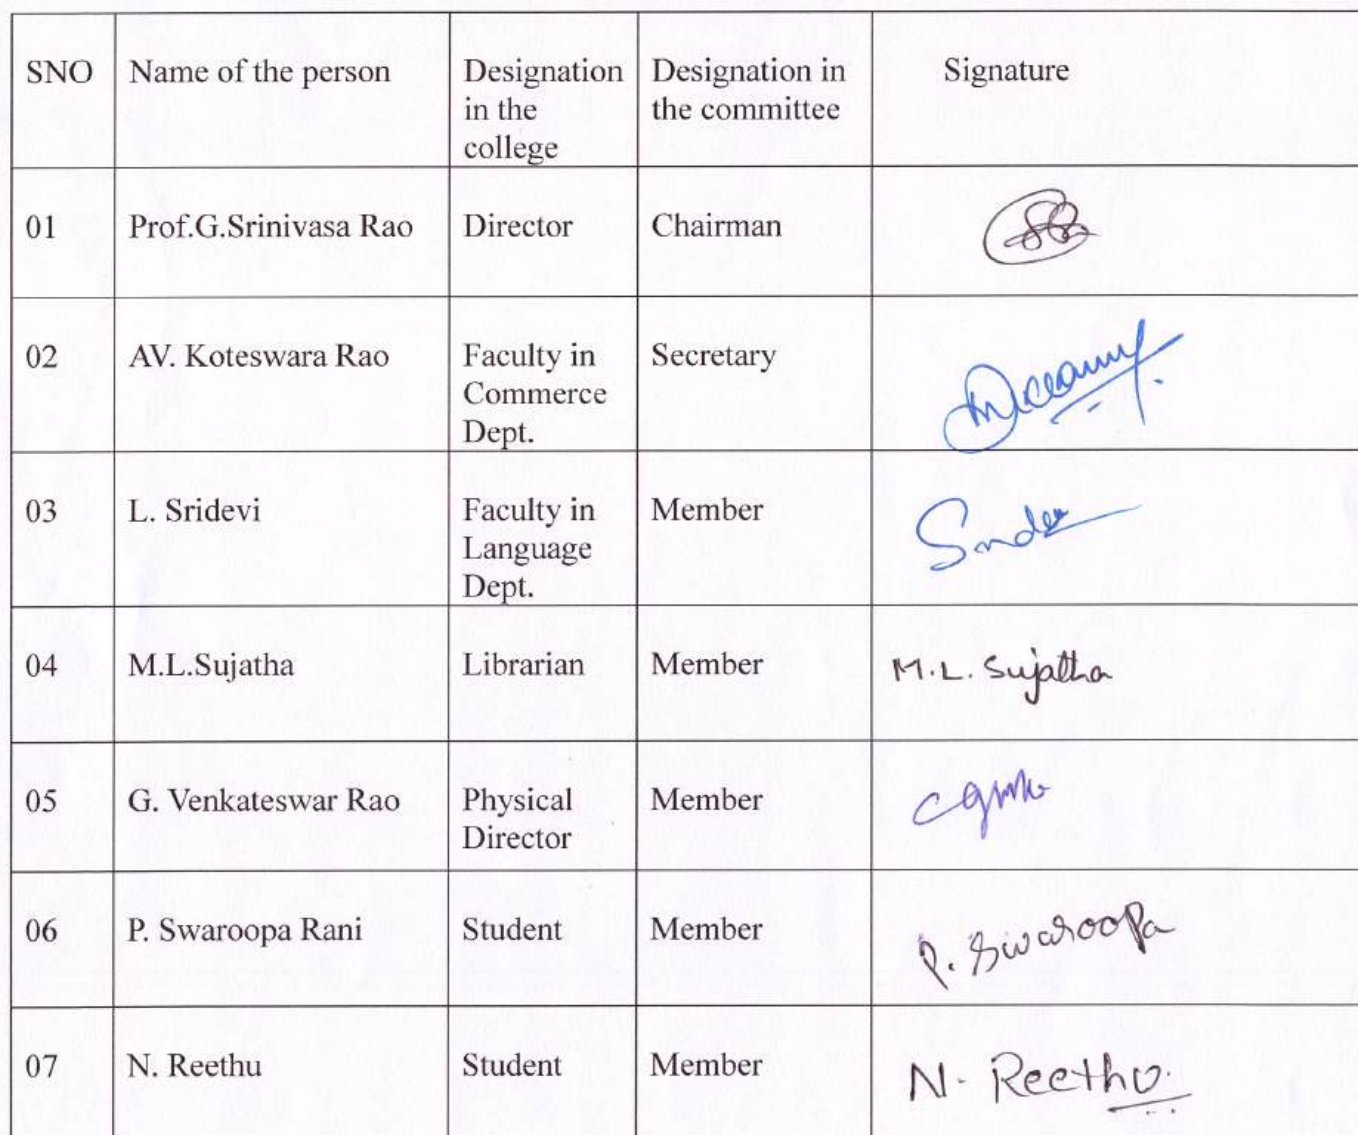 SNO Name of the person Designation in the college Designation in the committee Signature
01 Prof.G.Srinivasa Rao Director Chairman
02 AV. Koteswara Rao Faculty in Commerce Dept. Secretary
03 L. Sridevi Faculty in Language Dept. Member
04 M.L.Sujatha Librarian Member M.L. Sujatha
05 G. Venkateswar Rao Physical Director Member
06 P. Swaroopa Rani Student Member P. Swaroopa
07 N. Reethu Student Member N. Reethu